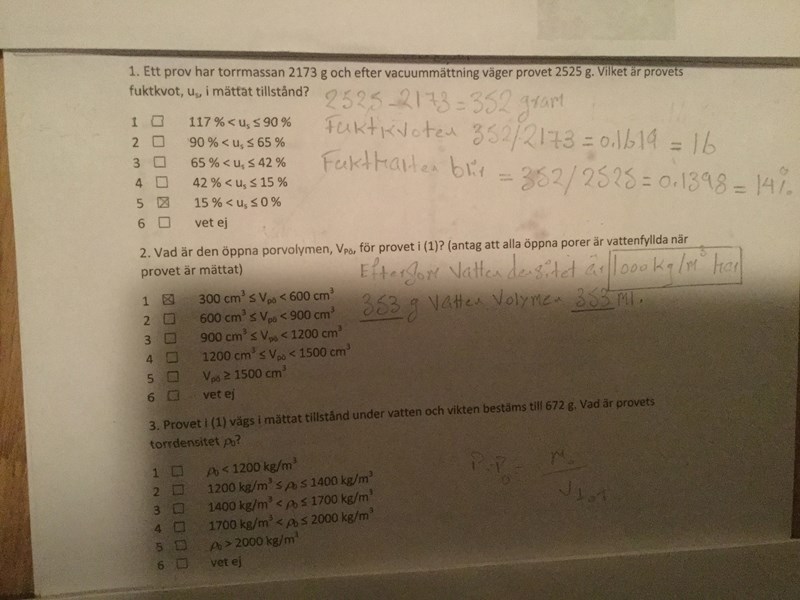 1. Ett prov har torrmassan 2173 g och efter vacuummättning väger provet 2525 g. Vilket är provets
fuktkvot, us, i mättat tillstånd? 2525-2173=352 gram
1 ☐ 117 % < us ≤ 90 %
Fuktkvoten 352/2173=0.1619=16
2 ☐ 90 % < us ≤ 65 %
3 ☐ 65 % < us ≤ 42 %
Fukthalten blir = 352/2525=0.1398=14%
4 ☐ 42 % < us ≤ 15 %
5 ☒ 15 % < us ≤ 0 %
6 ☐ vet ej
2. Vad är den öppna porvolymen, Vpö, för provet i (1)? (antag att alla öppna porer är vattenfyllda när
provet är mättat) Eftersom Vatten densitet är 1000kg/m³ har
1 ☒ 300 cm³ ≤ Vpö < 600 cm³
353 g Vatten Volymen 353 ml.
2 ☐ 600 cm³ ≤ Vpö < 900 cm³
3 ☐ 900 cm³ ≤ Vpö < 1200 cm³
4 ☐ 1200 cm³ ≤ Vpö < 1500 cm³
5 ☐ Vpö ≥ 1500 cm³
6 ☐ vet ej
3. Provet i (1) vägs i mättat tillstånd under vatten och vikten bestäms till 672 g. Vad är provets
torrdensitet ρ₀?
1 ☐ ρ₀ < 1200 kg/m³
2 ☐ 1200 kg/m³ ≤ ρ₀ ≤ 1400 kg/m³
3 ☐ 1400 kg/m³ < ρ₀ ≤ 1700 kg/m³
4 ☐ 1700 kg/m³ < ρ₀ ≤ 2000 kg/m³
5 ☐ ρ₀ > 2000 kg/m³
6 ☐ vet ej